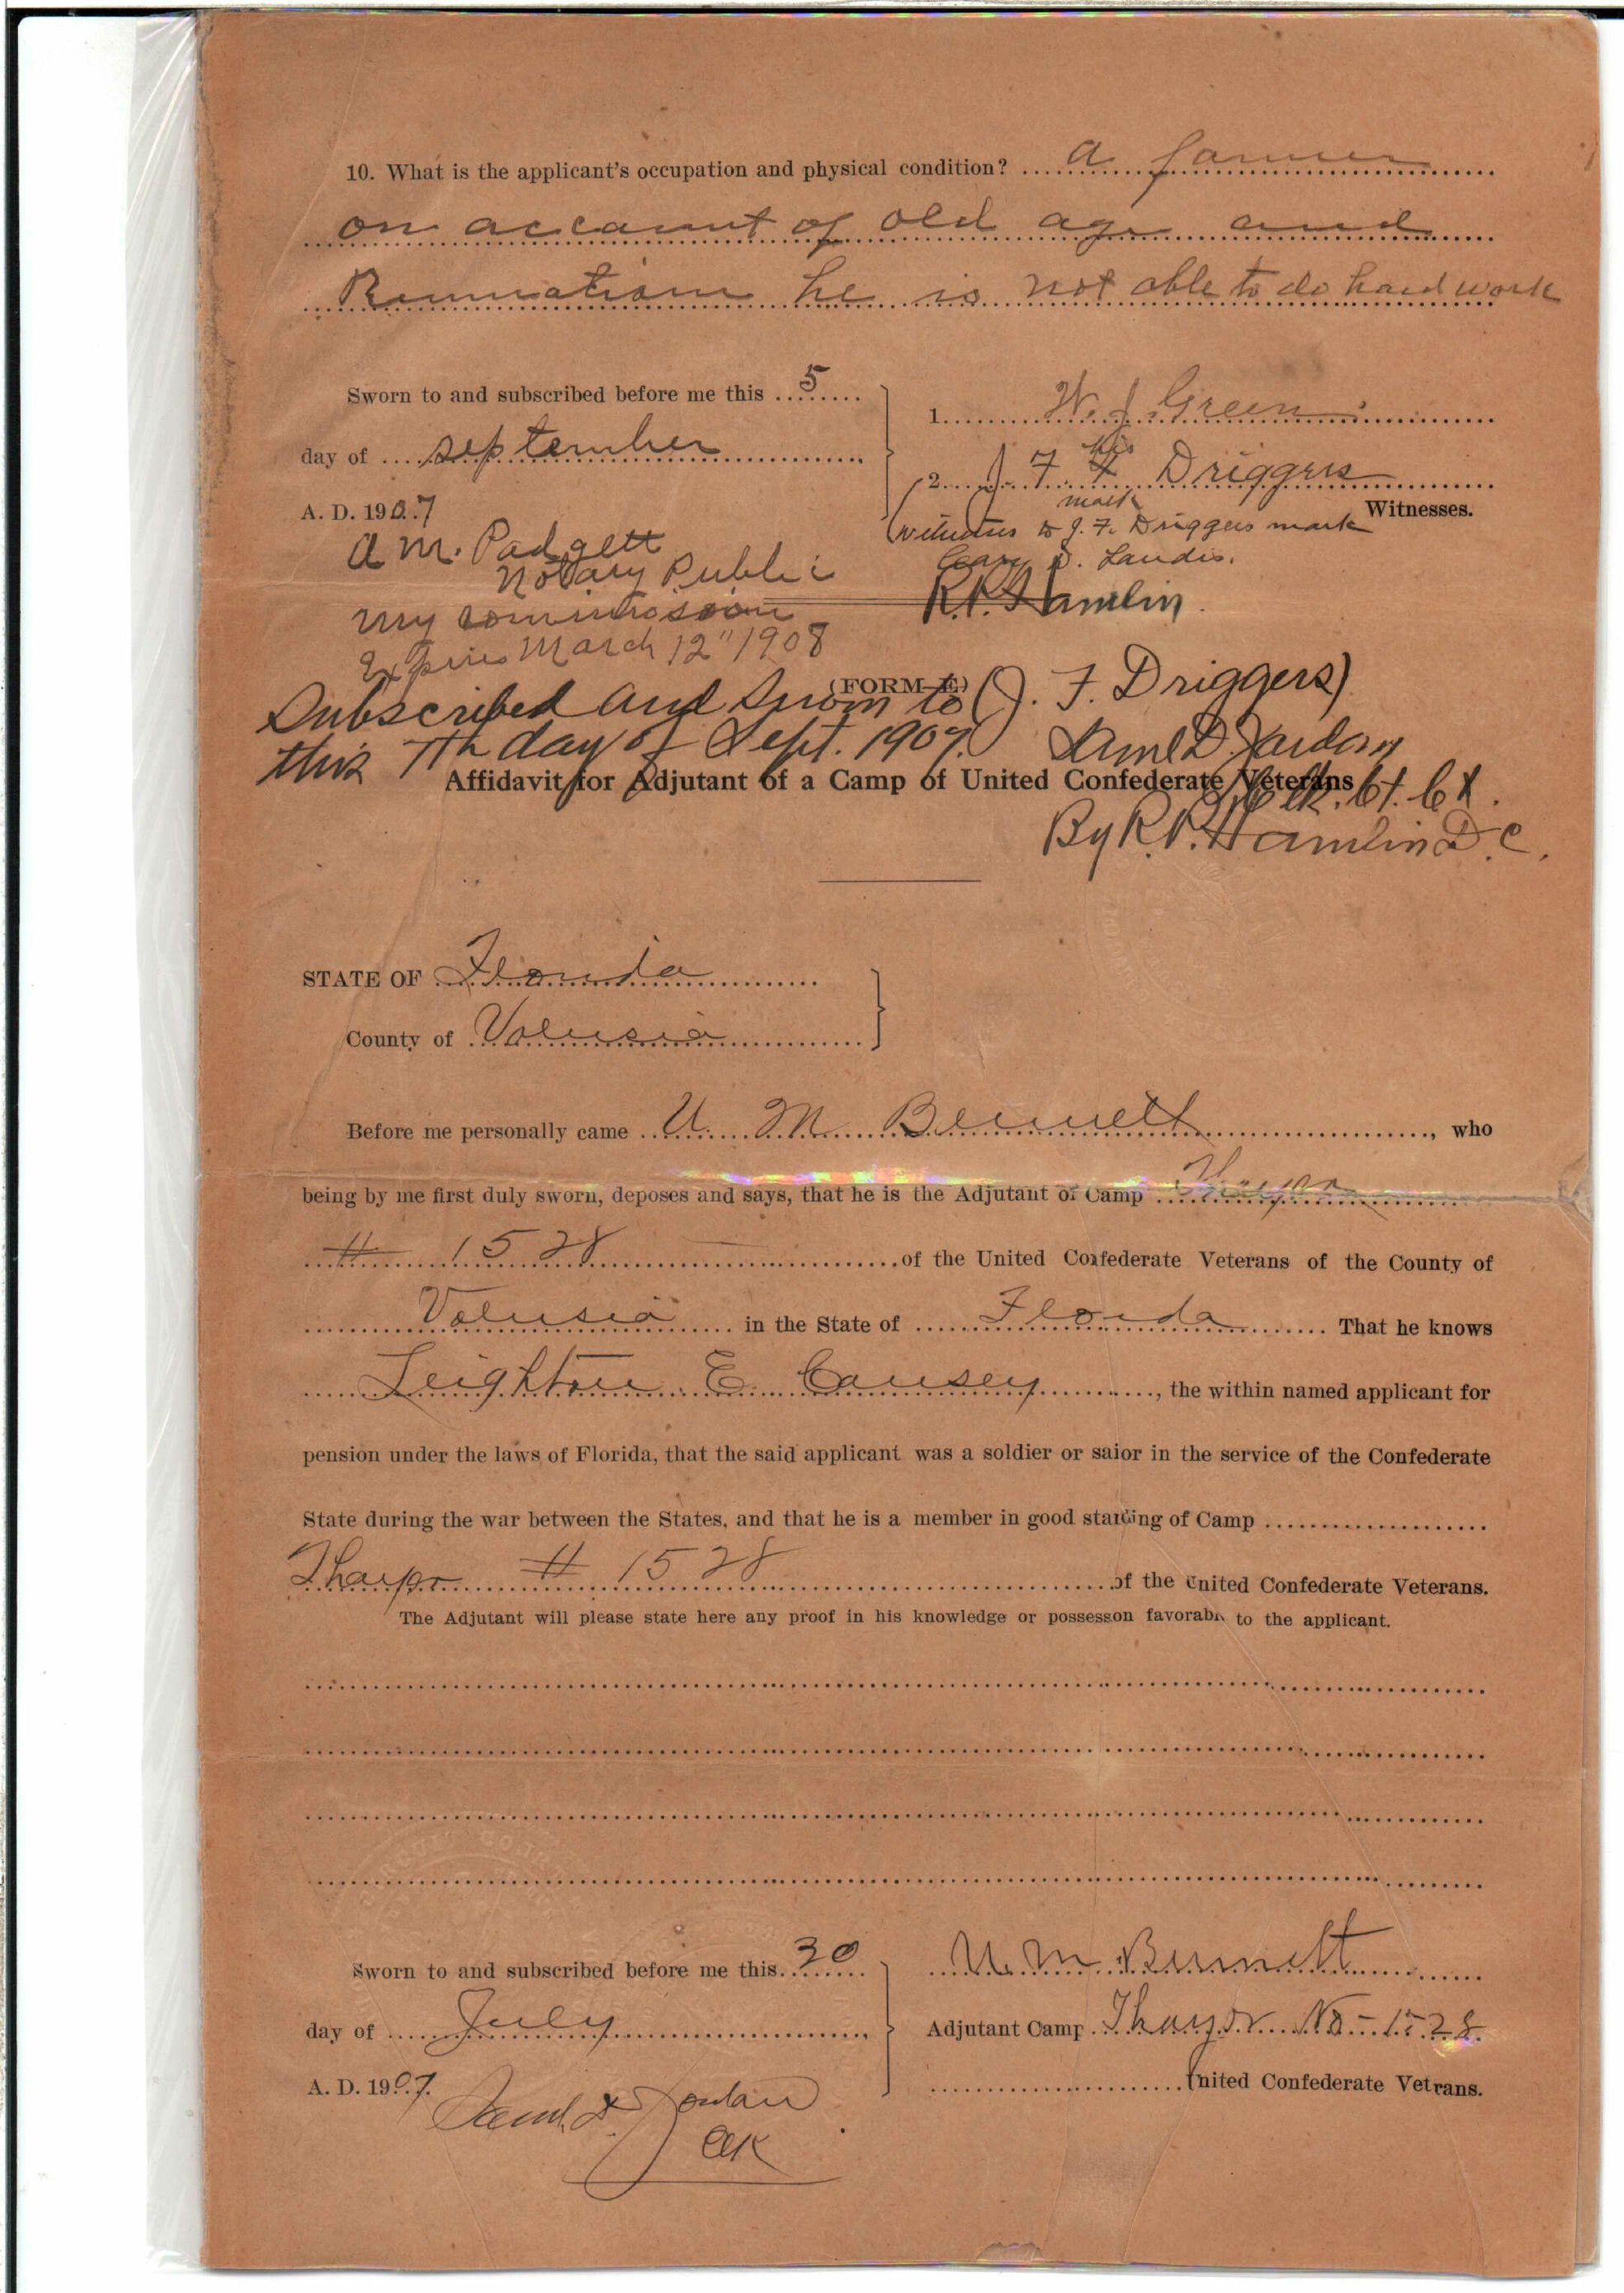 10. What is the applicant's occupation and physical condition? a farmer
on account of old age and
Rumatism he is not able to do hard work
Sworn to and subscribed before me this 5
day of september
A. D. 1907
1. W. J. Green
his
2. J. F. X Driggers
mark
Witnesses.
witness to J. F. Driggers mark
D. Landis.
R. P. Hamlin.
A M. Padgett
Notary Public
my commission
Expires March 12" 1908
(FORM E)
Subscribed and Sworn to (J. F. Driggers)
this 7th day of Sept. 1907. Saml D. Jordan
Affidavit for Adjutant of a Camp of United Confederate Veterans
Clk. Ct. Ct.
By R. P. Hamlin D. C.
STATE OF Florida
County of Volusia
Before me personally came U M Bennett, who
being by me first duly sworn, deposes and says, that he is the Adjutant of Camp
# 1528 of the United Confederate Veterans of the County of
Volusia in the State of Florida That he knows
Leighton E Causey, the within named applicant for
pension under the laws of Florida, that the said applicant was a soldier or saior in the service of the Confederate
State during the war between the States, and that he is a member in good standing of Camp
# 1528 of the United Confederate Veterans.
The Adjutant will please state here any proof in his knowledge or possesson favorable to the applicant.
Sworn to and subscribed before me this 30
day of July
A. D. 1907.
U. M. Bennett
Adjutant Camp No - 1528
United Confederate Vetrans.
Saml D. Jordan
Clk